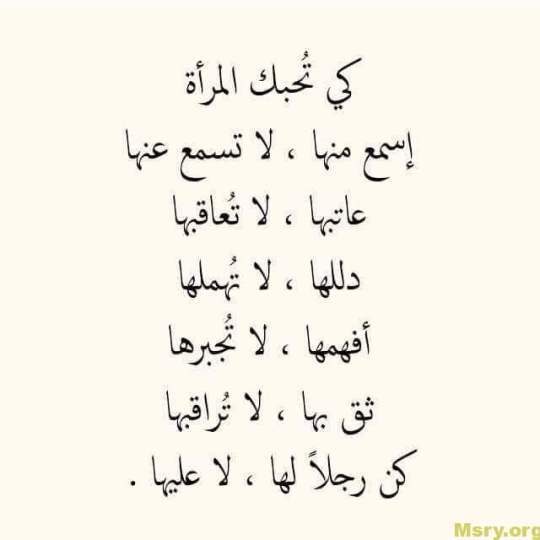 كي تُحبك المرأة
إسمع منها ، لا تسمع عنها
عاتبها ، لا تُعاقبها
دللها ، لا تُهملها
أفهمها ، لا تُجبرها
ثق بها ، لا تُراقبها
كن رجلاً لها ، لا عليها .
Msry.org